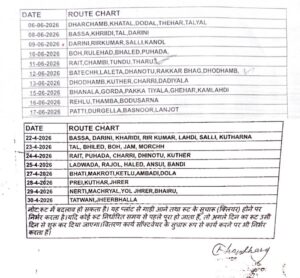 DATE ROUTE CHART
06-06-2026 DHARCHAMB,KHATAL,DODAL,THEHAR,TALYAL
08-06-2026 BASSA,KHRIIDI,TAL,DARINI
09-06-2026 DARINI,RIRKUMAR,SALLI,KANOL
10-06-2026 BOH,RULEHAD,BHALED,PUHADA,
11-06-2026 RAIT,CHAMBI,TUNDU,THARU
12-06-2026 BATECHH,LALETA,DHANOTU,RAKKAR BHAG,DHODHAMB,
13-06-2026 DHODHAMB,KUTHER,CHARRI,DADIYALA
15-06-2026 BHANALA,GORDA,PAKKA TIYALA,GHEHAR,KAMLAHDI
16-06-2026 REHLU,THAMBA,BODUSARNA
17-06-2026 PATTI,DURGELLA,BASNOOR,LANJOT
DATE ROUTE CHART
22-4-2026 BASSA, DARINI, KHARIDI, RIR KUMAR, LAHDI, SALLI, KUTHARNA
23-4-2026 TAL, BHILED, BOH, JAM, MORCHH
24-4-2026 RAIT, PUHADA, CHARRI, DHINOTU, KUTHER
25-4-2026 LADWADA, RAJOL, HALED, ANSUI, BANDI
27-4-2026 BHATI,MAKROTI,KETLU,AMBADI,DOLA
28-4-2026 PREI,KUTHAR,JHRER
29-4-2026 NERTI,MACHRIYAL,YOL JHRER,BHAIRU,
30-4-2026 TATWANI,JHEERBHALLA
नोट:रूट में बदलाव हो सकता है। यह प्लांट से गाड़ी आने तथा रूट के सुचारू (क्लियर) होने पर
निर्भर करता है।यदि कोई रूट निर्धारित समय से पहले पूरा हो जाता है, तो अगले दिन का रूट उसी
दिन से शुरू कर दिया जाएगा।वितरण कार्य सॉफ्टवेयर के सुचारू रूप से कार्य करने पर भी निर्भर
करता है।